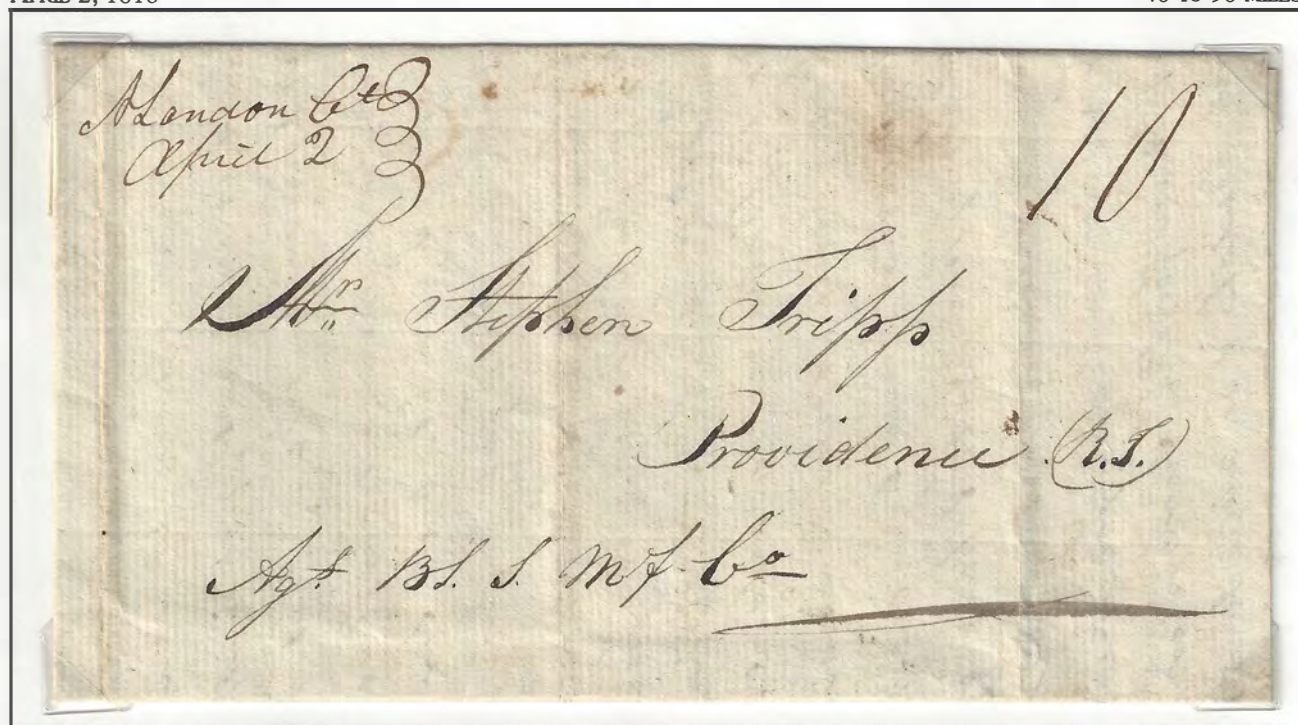 N London Ct
April 2
10
Mr Stephen Tripp
Providence (R.I.)
Agt Bl. S. Mf. Co